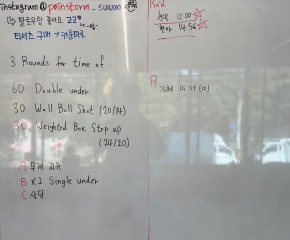 instagram@painstorm_suwon
3 Rounds for time of
60 Double under
30 Wall Ball Shot (20/14)
30 Weighted Box Step up
(24/20)
A 무게 자유
B x2 Single under
C 상담
RxD
12:00
14:56
A
15:54